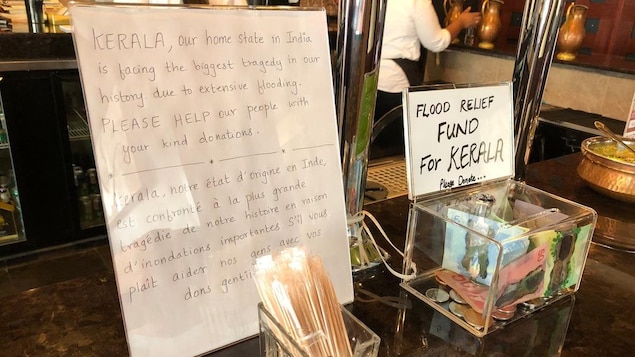 KERALA, our home state in India
is facing the biggest tragedy in our
history due to extensive flooding.
PLEASE HELP our people with
your kind donations.
Kerala, notre état d'origine en Inde,
est confronté à la plus grande
tragédie de notre histoire en raison
d'inondations importantes S'il vous
plaît aider nos gens avec vos
dons
FLOOD RELIEF
FUND
For KERALA
Please Donate...